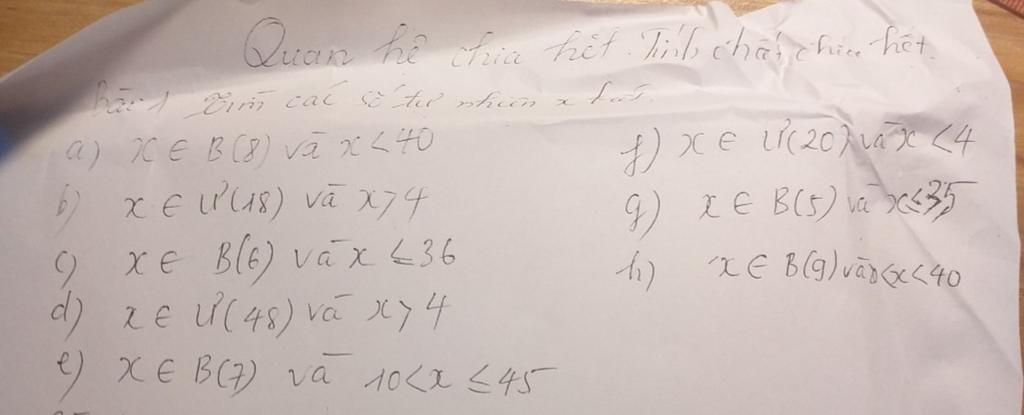 Quan hệ chia hết. Tính chất chia hết.
Bài 1 Tìm các số tự nhiên x
a) x ∈ B(8) và x < 40
b) x ∈ Ư(18) và x > 4
c) x ∈ B(6) và x ≤ 36
d) x ∈ Ư(48) và x > 4
e) x ∈ B(7) và 10 < x ≤ 45
f) x ∈ Ư(20) và x < 4
g) x ∈ B(5) và x ≤ 35
h) x ∈ B(9) và < x < 40